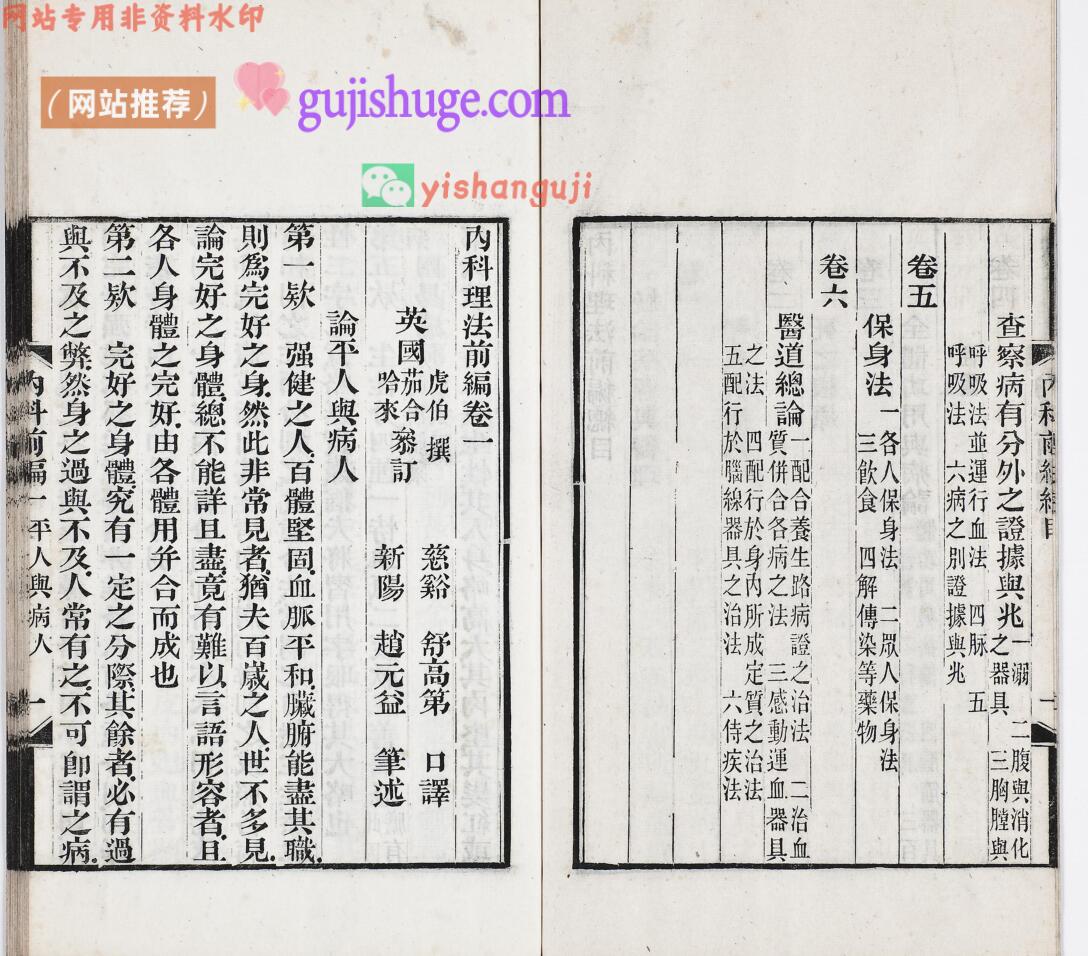 网站专用非资料水印
（网站推荐）
gujishuge.com
yishanguji
查察病有分外之證據與兆 一溺之器具 二腹與消化 三胸膛與
呼吸法並運行血法 四脉 五
呼吸法 六病之別證據與兆
卷五
保身法 一各人保身法 二眾人保身法
三飲食 四解傳染等藥物
卷六
醫道總論 一配合養生路病證之治法 二治血
質併合各病之法 三感動運血器具
之法 四配行於身內所成定質之治法
五配行於腦線器具之治法 六侍疾法
內科理法前編卷一
英國 虎伯 撰 慈谿 舒高第 口譯
茄合哈來 叅訂 新陽 趙元益 筆述
論平人與病人
第一欵 强健之人百體堅固血脈平和臟腑能盡其職
則爲完好之身然此非常見者猶夫百歲之人世不多見
論完好之身體總不能詳且盡竟有難以言語形容者且
各人身體之完好由各體用幷合而成也
第二欵 完好之身體究有一定之分際其餘者必有過
與不及之弊然身之過與不及人常有之不可卽謂之病
內科前編一 平人與病人 一